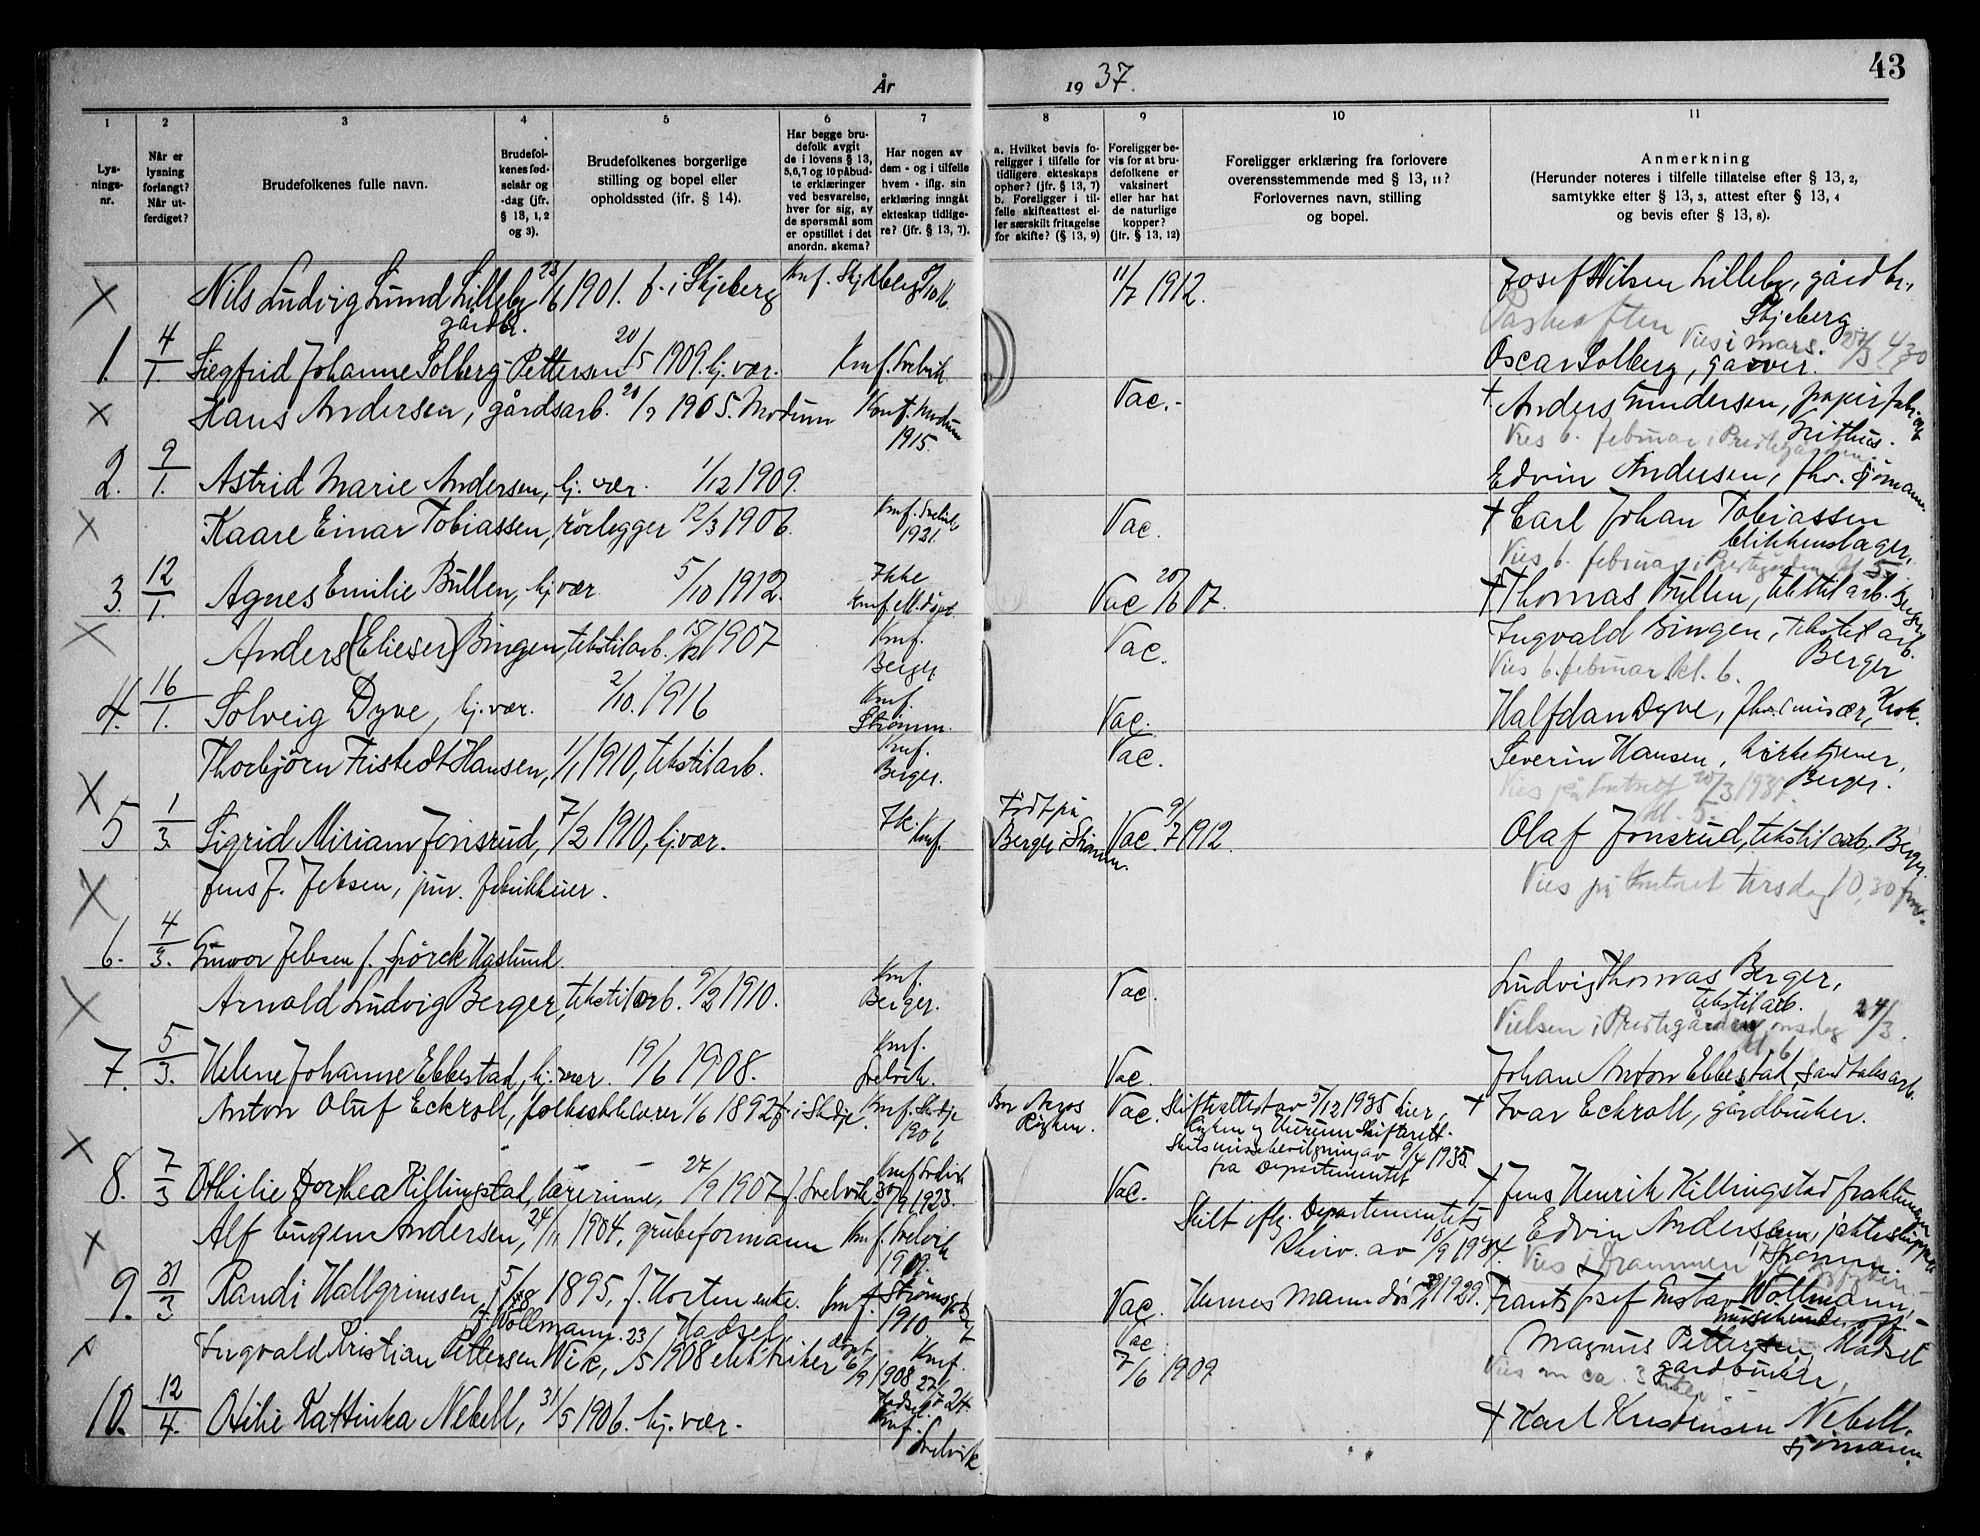 43
År 1937.
1 2 3 4 5 6 7 8 9 10 11
Lysnings-nr.
Når er lysning forlangt? Når utferdiget?
Brudefolkenes fulle navn.
Brudefolkenes fødselsår og -dag (jfr. § 13, 1, 2 og 3).
Brudefolkenes borgerlige stilling og bopel eller opholdssted (jfr. § 14).
Har begge brudefolk avgit de i lovens § 13, 5, 6, 7 og 10 påbudte erklæringer ved besvarelse, hver for sig, av de spørsmål som er opstillet i det anordn. skema?
Har nogen av dem - og i tilfelle hvem - iflg. sin erklæring inngåt ekteskap tidligere? (jfr. § 13, 7).
a. Hvilket bevis foreligger i tilfelle for tidligere ekteskaps ophør? (jfr. § 13, 7) b. Foreligger i tilfelle skifteattest eller særskilt fritagelse for skifte? (§ 13, 9)
Foreligger bevis for at brudefolkene er vaksinert eller har hat de naturlige kopper? (jfr. § 13, 12)
Foreligger erklæring fra forlovere overensstemmende med § 13, 11? Forlovernes navn, stilling og bopel.
Anmerkning (Herunder noteres i tilfelle tillatelse efter § 13, 2, samtykke efter § 13, 3, attest efter § 13, 4 og bevis efter § 13, 8).
X Nils Ludvig Lund Lilleby 23/6 1901. f. i Skjeberg Knf. Skjeberg 11/7 1912. Josef Nilsen Lilleby, gårdbr.,
gårdbr. Skjeberg
Påskeaften Vies i mars.
1. 4/1. Siegfrid Johanne Solberg-Pettersen 20/5 1909. hj. vær. Knf. Svelvik Oscar Solberg, garver.
X Hans Andersen, gårdsarb. 1905. Modum Konf. Modum 1915. Vac. - † Anders Gundersen, papirfabr.arb
Vies 6. februar i Prestegården.
2. 9/1. Astrid Marie Andersen, hj. vær. 1/12 1909. Edvin Andersen, fhv. sjømann
X Kaare Einar Tobiassen, rørlegger 12/3 1906. Knf. Svelvik 1921. Vac. † Carl Johan Tobiassen
blikkenslager,
Vies 6. februar i Prestegården kl. 5.
3. 12/1. Agnes Emilie Bullen, hj. vær. 5/10 1912. Ikke Knf. M. døpt. Vac 20/6 17. † Thomas Bullen, tekstilarb. Berger
X Anders (Elieser) Bingen, tekstilarb. 15/12 1907 Knf. Berger. Vac. Ingvald Bingen, tekstilarb.
Berger
Vies 6. februar kl. 6.
4. 16/1. Solveig Dyve, hj. vær. 2/10. 1916 Knf. Strømm. Vac. Halfdan Dyve,
X Thorbjørn Fristedt Hansen, 1/1 1910, tekstilarb. Knf. Berger. Vac. Severin Hansen, kirketjener,
Berger.
Vies på kontoret 20/3 1937.
kl. 5.
5 1/3. Sigrid Miriam Jonsrud, 7/2 1910, hj. vær. Ik. Knf. Født på Berger i Strømm. Vac. 9/7 1912. Olaf Jonsrud, tekstilarb. Berger.
X Jens J. Jebsen, jun. fabrikkeier. Vies på kontoret tirsdag 10,30 form.
6. 4/3. Gunvor Jebsen f. Spørck Haslund.
X Arnold Ludvig Berger, tekstilarb. 9/2 1910. Knf. Berger. Vac. Ludvig Thomas Berger,
tekstilarb.
Vielsen i Prestegården onsdag 24/3.
kl. 6
7. 5/3. Helene Johanne Ebbestad, hj. vær. 19/6 1908. Knf. Svelvik. Vac. Johan Anton Ebbestad, sandtaksarb.
X Anton Oluf Eckroll, folkeskolelærer 1/6 1892 f. i Skodje. Knf. Skodje 1906 Bor Åros Røyken. Vac. Skifteattest av 5/12 1935 her, Røyken og Hurum Skifterett. † Ivar Eckroll, gårdbruker.
Skilsmissebevilgning av 9/4 1935. fra Departementet
8. 7/3 Othilie Dorthea Killingstad, lærerinne, 27/9 1907 f. Svelvik. Knf. Svelvik 30/9 1923. Vac. † Jens Henrik Killingstad fraktemann
X Alf Eugen Andersen, 24/11 1904, grubeformann Knf. Svelvik 1909. Skilt iflg. Departementets Skriv. av 10/9 1934. Edvin Andersen, jakteskipper
Strømm.
Vies i Drammen
9. 31/3 Randi Hallgrimsen, 5/8 1895, f. Horten enke. Knf. Strømsgodset 1910 Vac. Hennes mann død 1929. Frantz Josef Gustav Wollmann,
f. Wollmann.
X Ingvald Kristian Pettersen Wik, 23/5 1908 elektriker Hadsel døpt 6/9 1908 Knf. Hadsel 24. Vac 7/6 1909 Magnus Pettersen, Hadsel
gårdbruker,
Vies om ca. 3 uker.
10. 12/4. Otilie Kattinka Nebell, 31/5 1906. hj. vær. Knf. Svelvik † Karl Kristensen Nebell.
sjømann.